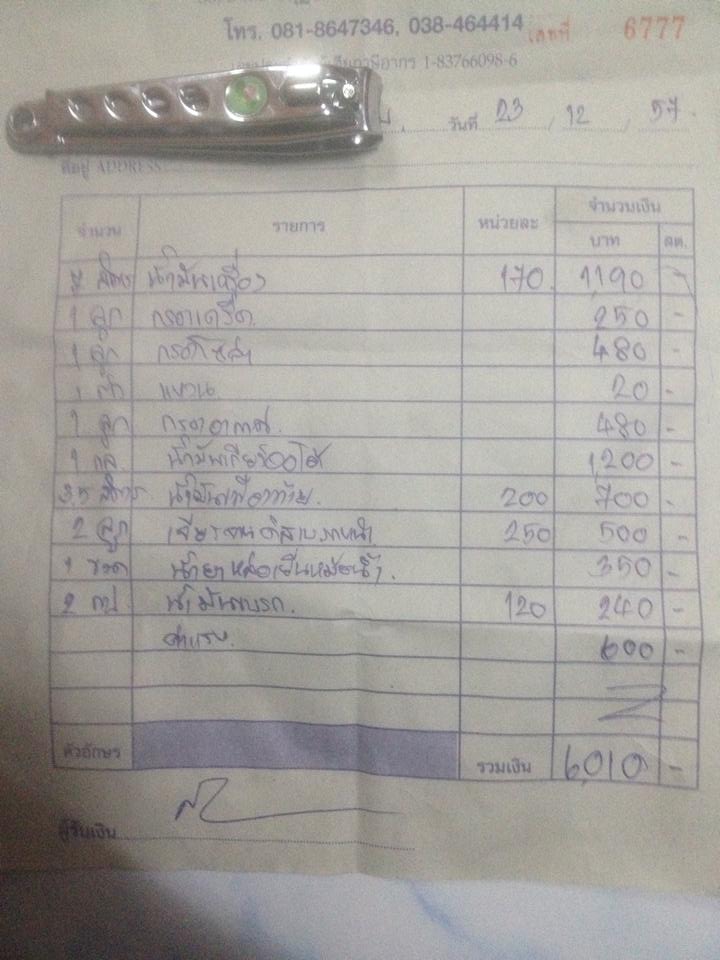 โทร. 081-8647346, 038-464414 เลขที่ 6777
ภาษีอากร 1-83766098-6
วันที่ 23 / 12 / 57
ที่อยู่ ADDRESS
จำนวน รายการ หน่วยละ จำนวนเงิน
บาท สต.
7 ลิตร น้ำมันเครื่อง 170 1,190 -
1 ลูก 250 -
1 ลูก กรองโซล่า 480 -
1 แหวน 20 -
1 ลูก กรองอากาศ 480 -
1 กล. น้ำมันเกียร์ออโต้ 1,200 -
3.5 ลิตร น้ำมันเฟืองท้าย 200 700 -
2 ลูก เจียรจานดิสเบรคหน้า 250 500 -
1 ขวด น้ำยาหล่อเย็นหม้อน้ำ 350 -
2 กป. น้ำมันเบรก 120 240 -
ค่าแรง 600 -
ตัวอักษร รวมเงิน 6,010 -
ผู้รับเงิน